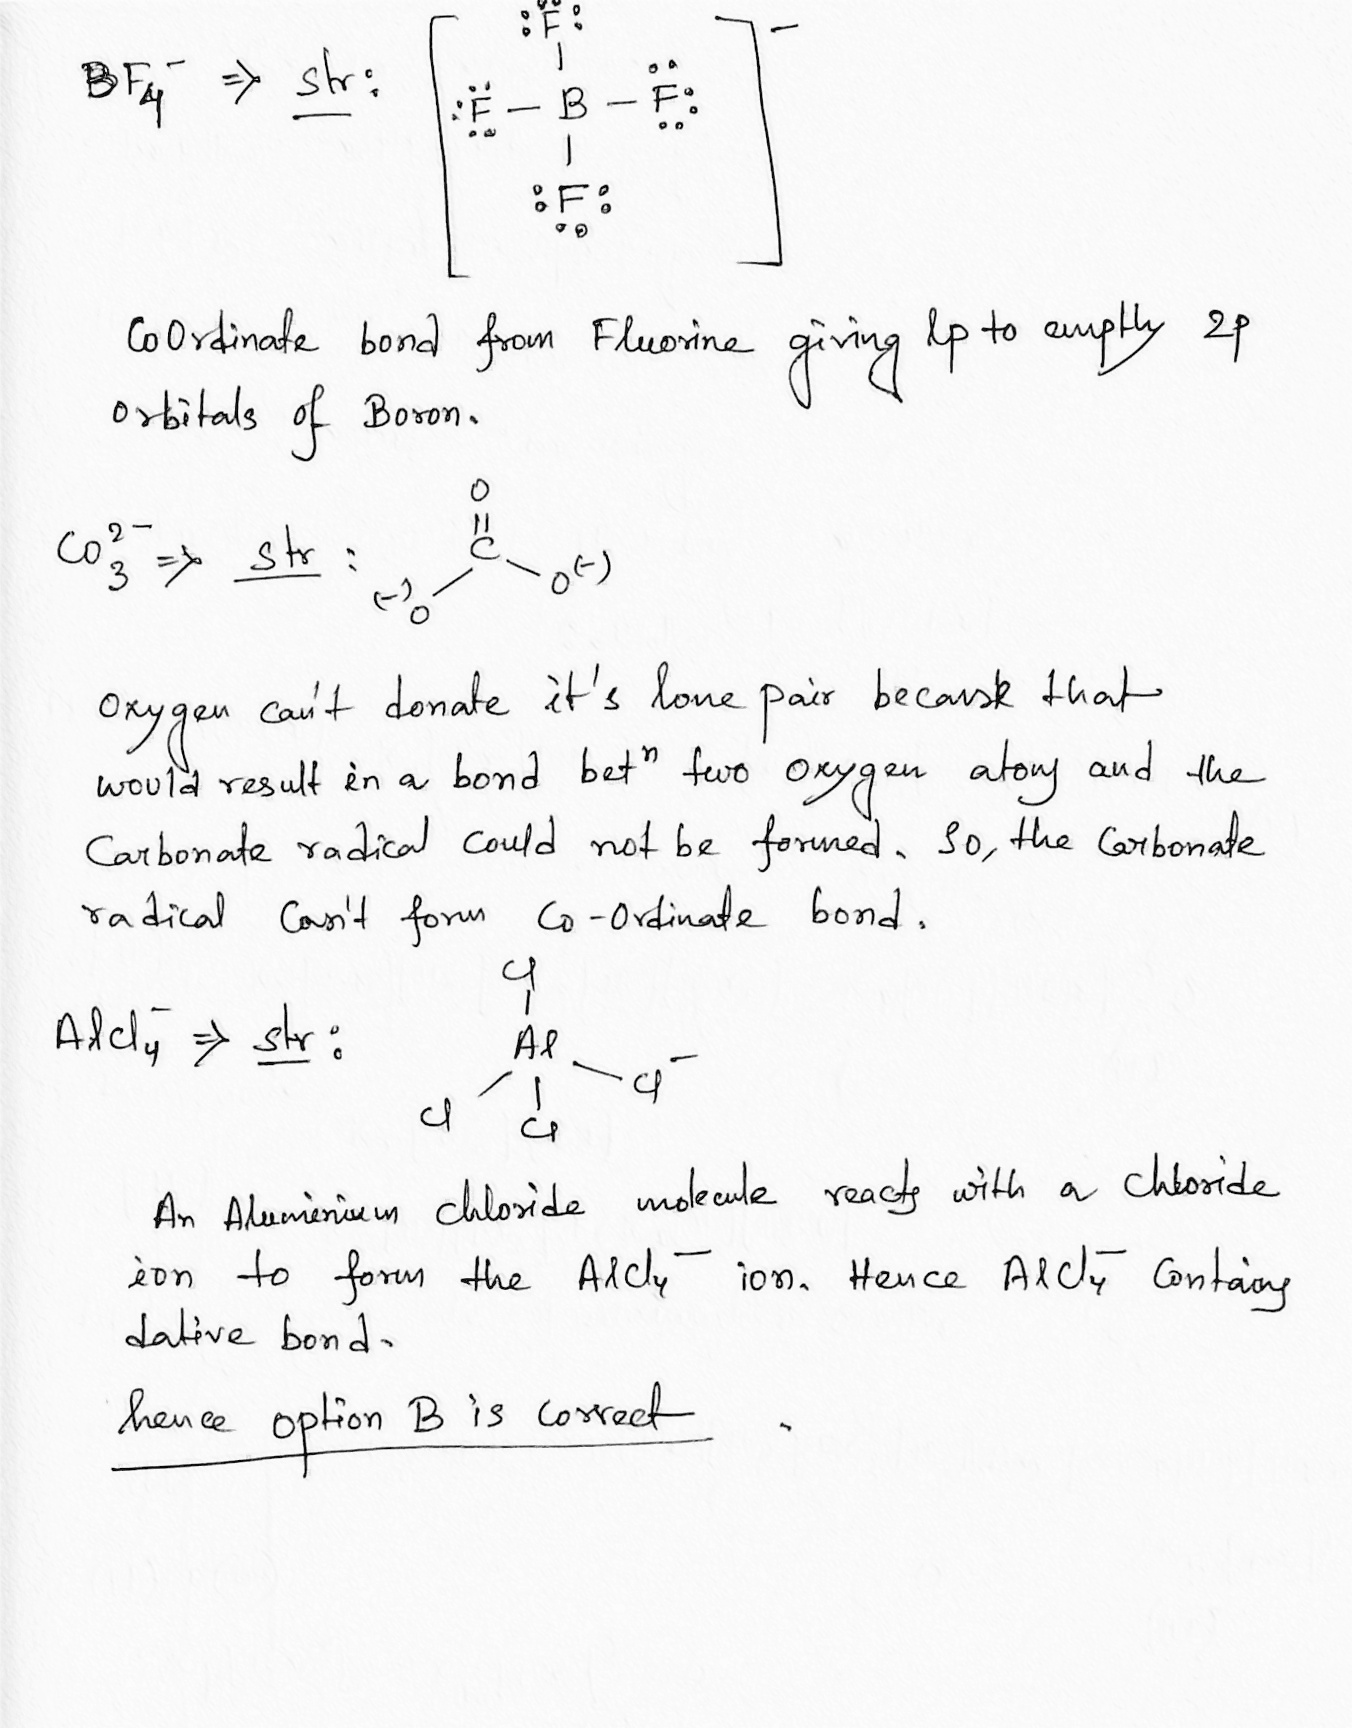 BF4⁻ ⇒ str: [ :F: ]⁻
:F – B – F:
:F:
CoOrdinate bond from Fluorine giving lp to empty 2p
orbitals of Boron.
O
Co3²⁻ ⇒ str : C
(-)O O(-)
Oxygen can't donate it's lone pair because that
would result in a bond betⁿ two oxygen atoms and the
Carbonate radical could not be formed. So, the Carbonate
radical Can't form Co-Ordinate bond.
Cl
AlCl4⁻ ⇒ str: Al
Cl Cl Cl⁻
An Aluminium chloride molecule reacts with a chloride
ion to form the AlCl4⁻ ion. Hence AlCl4⁻ Contains
dative bond.
hence option B is correct.